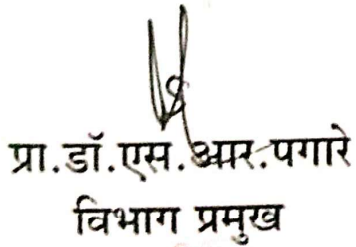 प्रा.डॉ.एस.आर.पगारे
विभाग प्रमुख